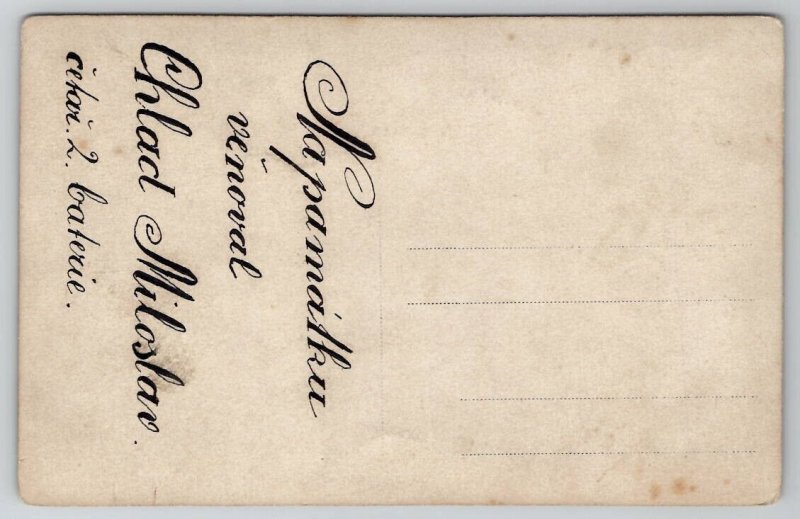 Na památku
veňoval
Chlad Miloslav.
četař. 2. baterie.